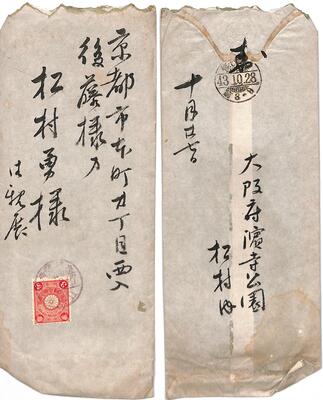 京都市本町廿丁目西入
後藤様方
松村勇様
御親展
43.10.28
十月廿七日
大阪府濱寺公園
松村内